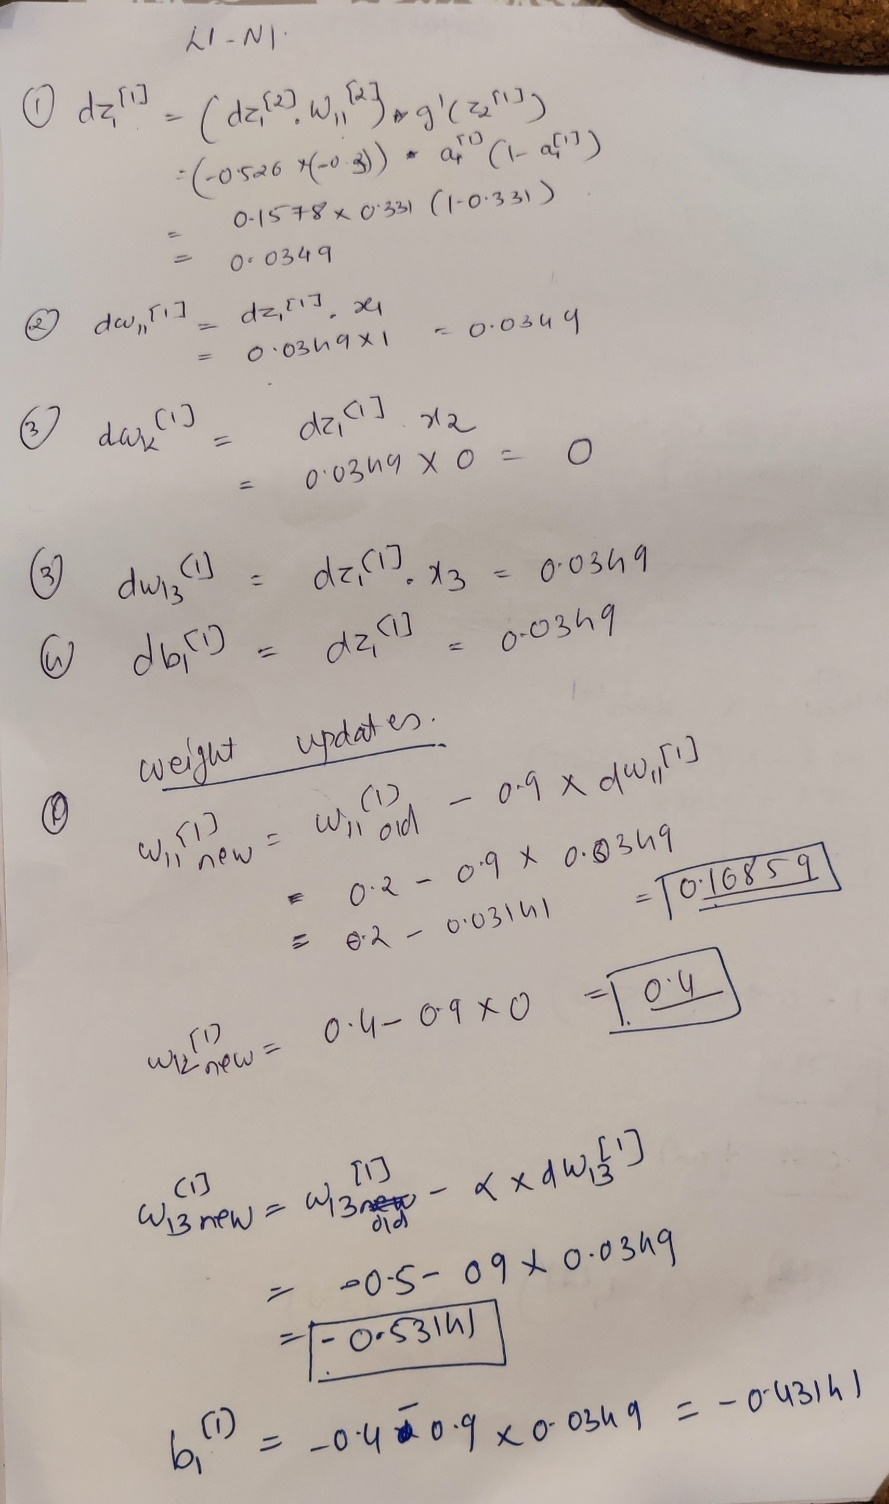 L1-N1.
① dz₁^[1] = (dz₁^[2]. W₁₁^[2]) * g'(z₂^[1])
= (-0.526 x(-0.3)) * a₁^[1] (1- a₁^[1])
= 0.1578 x 0.331 (1-0.331)
= 0.0349
② dw₁₁^[1] = dz₁^[1]. x₁
= 0.0349x1 = 0.0349
③ dw₁₂^[1] = dz₁^[1] . x₂
= 0.0349 x 0 = 0
③ dw₁₃^[1] = dz₁^[1]. x₃ = 0.0349
④ db₁^[1] = dz₁^[1] = 0.0349
weight updates.
① w₁₁^[1] new = W₁₁^[1] old - 0.9 x dW₁₁^[1]
= 0.2 - 0.9 x 0.0349
= 0.2 - 0.03141 = 0.16859
w₁₂^[1] new = 0.4-0.9x0 = 0.4
W₁₃^[1] new = W₁₃^[1] old - α x dW₁₃^[1]
= -0.5- 09 x 0.0349
= -0.53141
b₁^[1] = -0.4 - 0.9 x 0.0349 = -0.43141